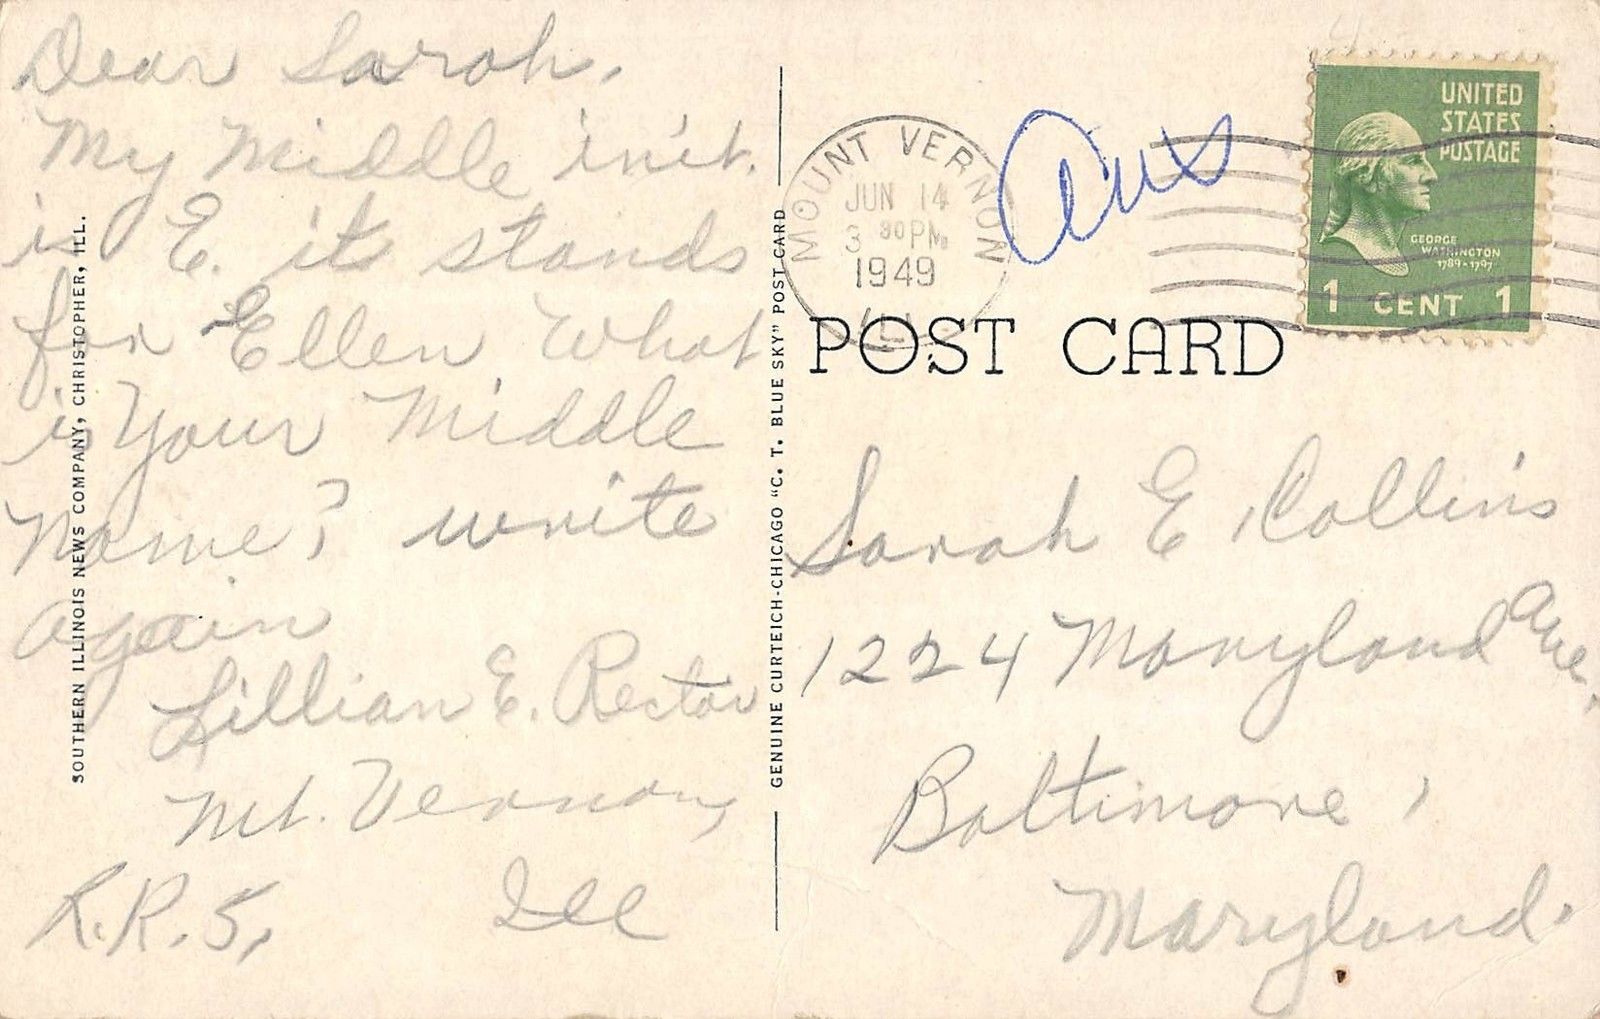 Dear Sarah,
My Middle init.
is E. it stands
for Ellen What
is Your Middle
Name? write
again
Lillian E. Rector
Mt. Vernon,
R.R. 5, Ill
SOUTHERN ILLINOIS NEWS COMPANY, CHRISTOPHER, ILL.
GENUINE CURTEICH-CHICAGO "C. T. BLUE SKY" POST CARD
MOUNT VERNON
JUN 14
3 30PM
1949
ILL.
Ans
UNITED
STATES
POSTAGE
GEORGE
WASHINGTON
1789-1797
1 CENT 1
POST CARD
Sarah E Collins
1224 Maryland Ave.
Baltimore,
Maryland.